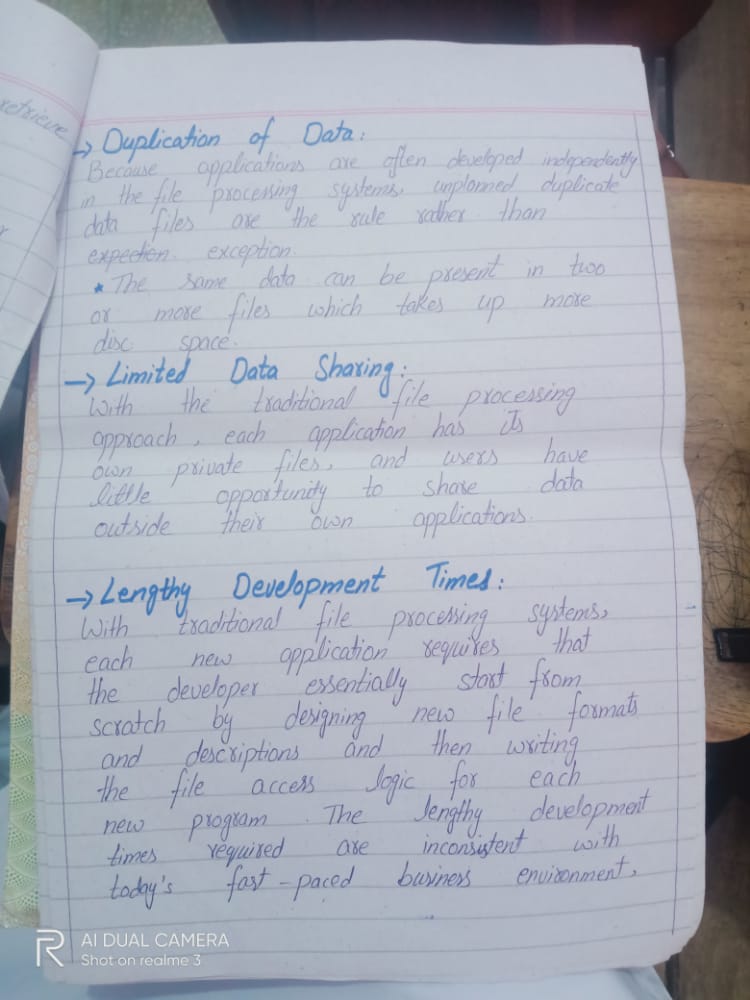 retrieve
→ Duplication of Data:
Because applications are often developed independently
in the file processing systems, unplanned duplicate
data files are the rule rather than
expection exception.
* The same data can be present in two
or more files which takes up more
disc space.
→ Limited Data Sharing:
With the traditional file processing
approach, each application has its
own private files, and users have
little opportunity to share data
outside their own applications.
→ Lengthy Development Times:
With traditional file processing systems,
each new application requires that
the developer essentially start from
scratch by designing new file formats
and descriptions and then writing
the file access logic for each
new program. The lengthy development
times required are inconsistent with
today's fast-paced business environment.
R AI DUAL CAMERA
Shot on realme 3